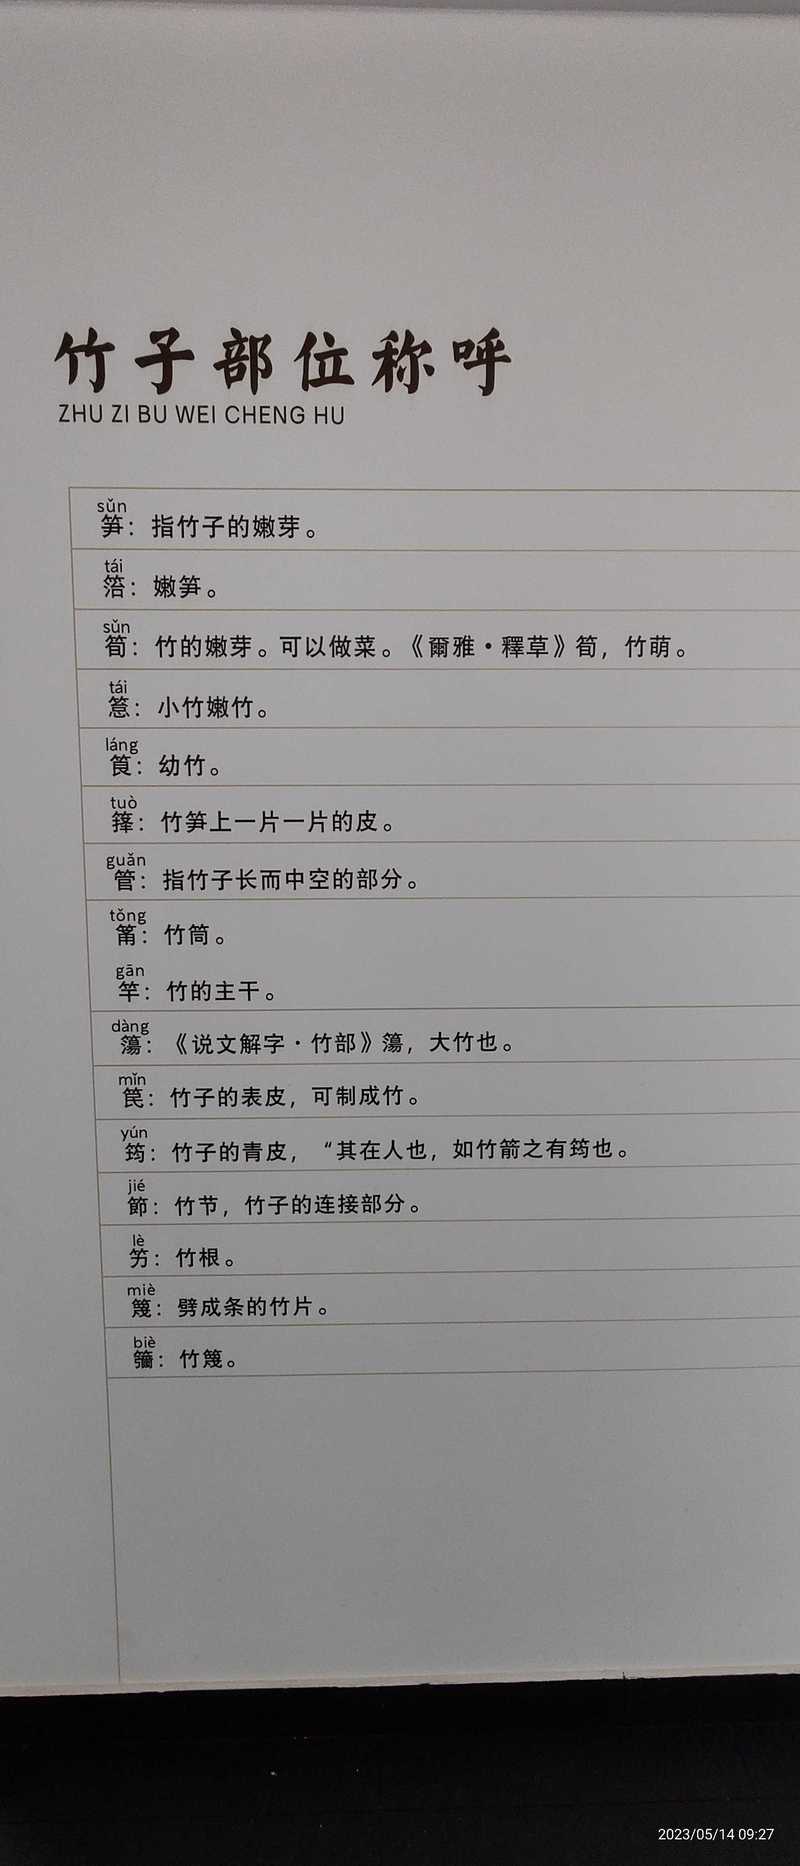 竹子部位称呼
ZHU ZI BU WEI CHENG HU
sǔn
笋：指竹子的嫩芽。
tái
箈：嫩笋。
sǔn
筍：竹的嫩芽。可以做菜。《爾雅·釋草》筍，竹萌。
tái
：小竹嫩竹。
láng
筤：幼竹。
tuò
籜：竹笋上一片一片的皮。
guǎn
管：指竹子长而中空的部分。
tǒng
筩：竹筒。
gān
竿：竹的主干。
dàng
簜：《说文解字·竹部》簜，大竹也。
mǐn
笢：竹子的表皮，可制成竹。
yún
筠：竹子的青皮，“其在人也，如竹箭之有筠也。
jié
節：竹节，竹子的连接部分。
lè
竻：竹根。
miè
篾：劈成条的竹片。
biè
：竹篾。
2023/05/14 09:27